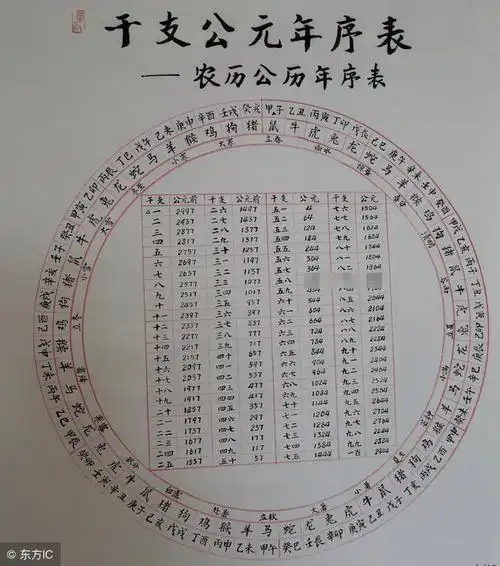 干支公元年序表
——农历公历年序表
甲子 乙丑 丙寅 丁卯 戊辰 己巳 庚午 辛未 壬申 癸酉 甲戌 乙亥 丙子 丁丑 戊寅 己卯 庚辰 辛巳 壬午 癸未 甲申 乙酉 丙戌 丁亥 戊子 己丑 庚寅 辛卯 壬辰 癸巳 甲午 乙未 丙申 丁酉 戊戌 己亥 庚子 辛丑 壬寅 癸卯 甲辰 乙巳 丙午 丁未 戊申 己酉 庚戌 辛亥 壬子 癸丑 甲寅 乙卯 丙辰 丁巳 戊午 己未 庚申 辛酉 壬戌 癸亥
鼠 牛 虎 兔 龙 蛇 马 羊 猴 鸡 狗 猪 鼠 牛 虎 兔 龙 蛇 马 羊 猴 鸡 狗 猪 鼠 牛 虎 兔 龙 蛇 马 羊 猴 鸡 狗 猪 鼠 牛 虎 兔 龙 蛇 马 羊 猴 鸡 狗 猪 鼠 牛 虎 兔 龙 蛇 马 羊 猴 鸡 狗 猪
立春 雨水 惊蛰 春分 清明 谷雨 立夏 小满 芒种 夏至 小暑 大暑 立秋 处暑 白露 秋分 寒露 立冬 小雪 大雪 冬至 小寒 大寒
干支 公元前 干支 公元前 干支 公元 干支 公元
一 2997 二六 1497 五一 4 七六 1504
二 2937 二七 1437 五二 64 七七 1564
三 2877 二八 1377 五三 124 七八 1624
四 2817 二九 1317 五四 184 七九 1684
五 2757 三十 1257 五五 244 八十 1744
六 2697 三一 1197 五六 304 八一 1804
七 2637 三二 1137 五七 364 八二 1864
八 2577 三三 1077 五八
九 2517 三四 1017 五九
十 2457 三五 957 六十 544 八五 2044
十一 2397 三六 897 六一 604 八六 2104
十二 2337 三七 837 六二 664 八七 2164
十三 2277 三八 777 六三 724 八八 2224
十四 2217 三九 717 六四 784 八九 2284
十五 2157 四十 657 六五 844 九十 2344
十六 2097 四一 597 六六 904 九一 2404
十七 2037 四二 537 六七 964 九二 2464
十八 1977 四三 477 六八 1024 九三 2524
十九 1917 四四 417 六九 1084 九四 2584
二十 1857 四五 357 七十 1144 九五 2644
二一 1797 四六 297 七一 1204 九六 2704
二二 1737 四七 237 七二 1264 九七 2764
二三 1677 四八 177 七三 1324 九八 2824
二四 1617 四九 117 七四 1384 九九 2884
二五 1557 五十 57 七五 1444 一百 2944
©东方IC